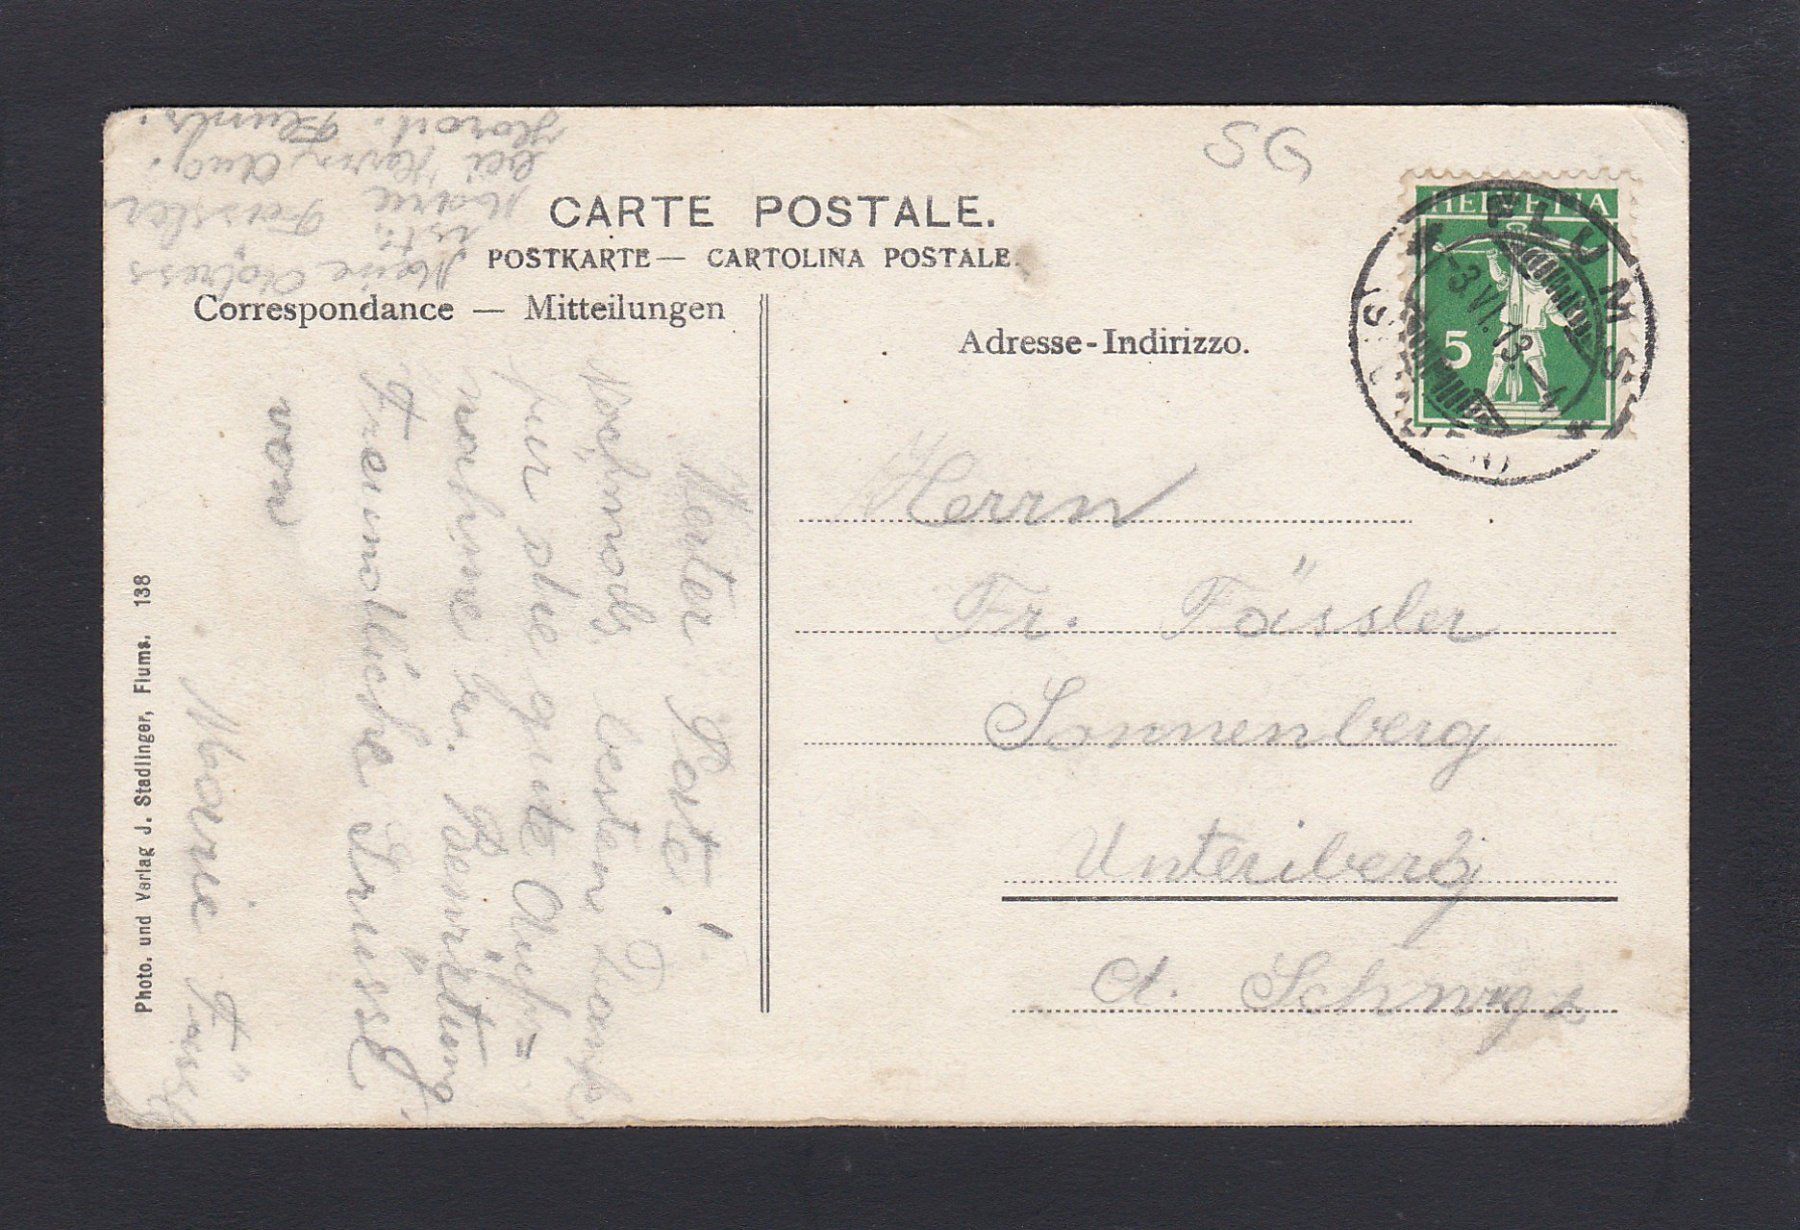 SG
CARTE POSTALE.
POSTKARTE — CARTOLINA POSTALE.
Correspondance — Mitteilungen
Adresse-Indirizzo.
HELVETIA
5
FLUMS
-3.VI.13.-4
(ST. GALLEN)
Herrn
Fr. Fässler
Sonnenberg
Unteriberg
Ct. Schwyz
Werter
Nochmals besten Dank
für die gute Auf=
nahme u. Bewirtung
Freundliche Grüsse
von
Marie Fässl
Meine Adress
ist: Fässler
Marie
bei Herrn Aug.
Flums.
Photo. und Verlag J. Stadlinger, Flums. 138